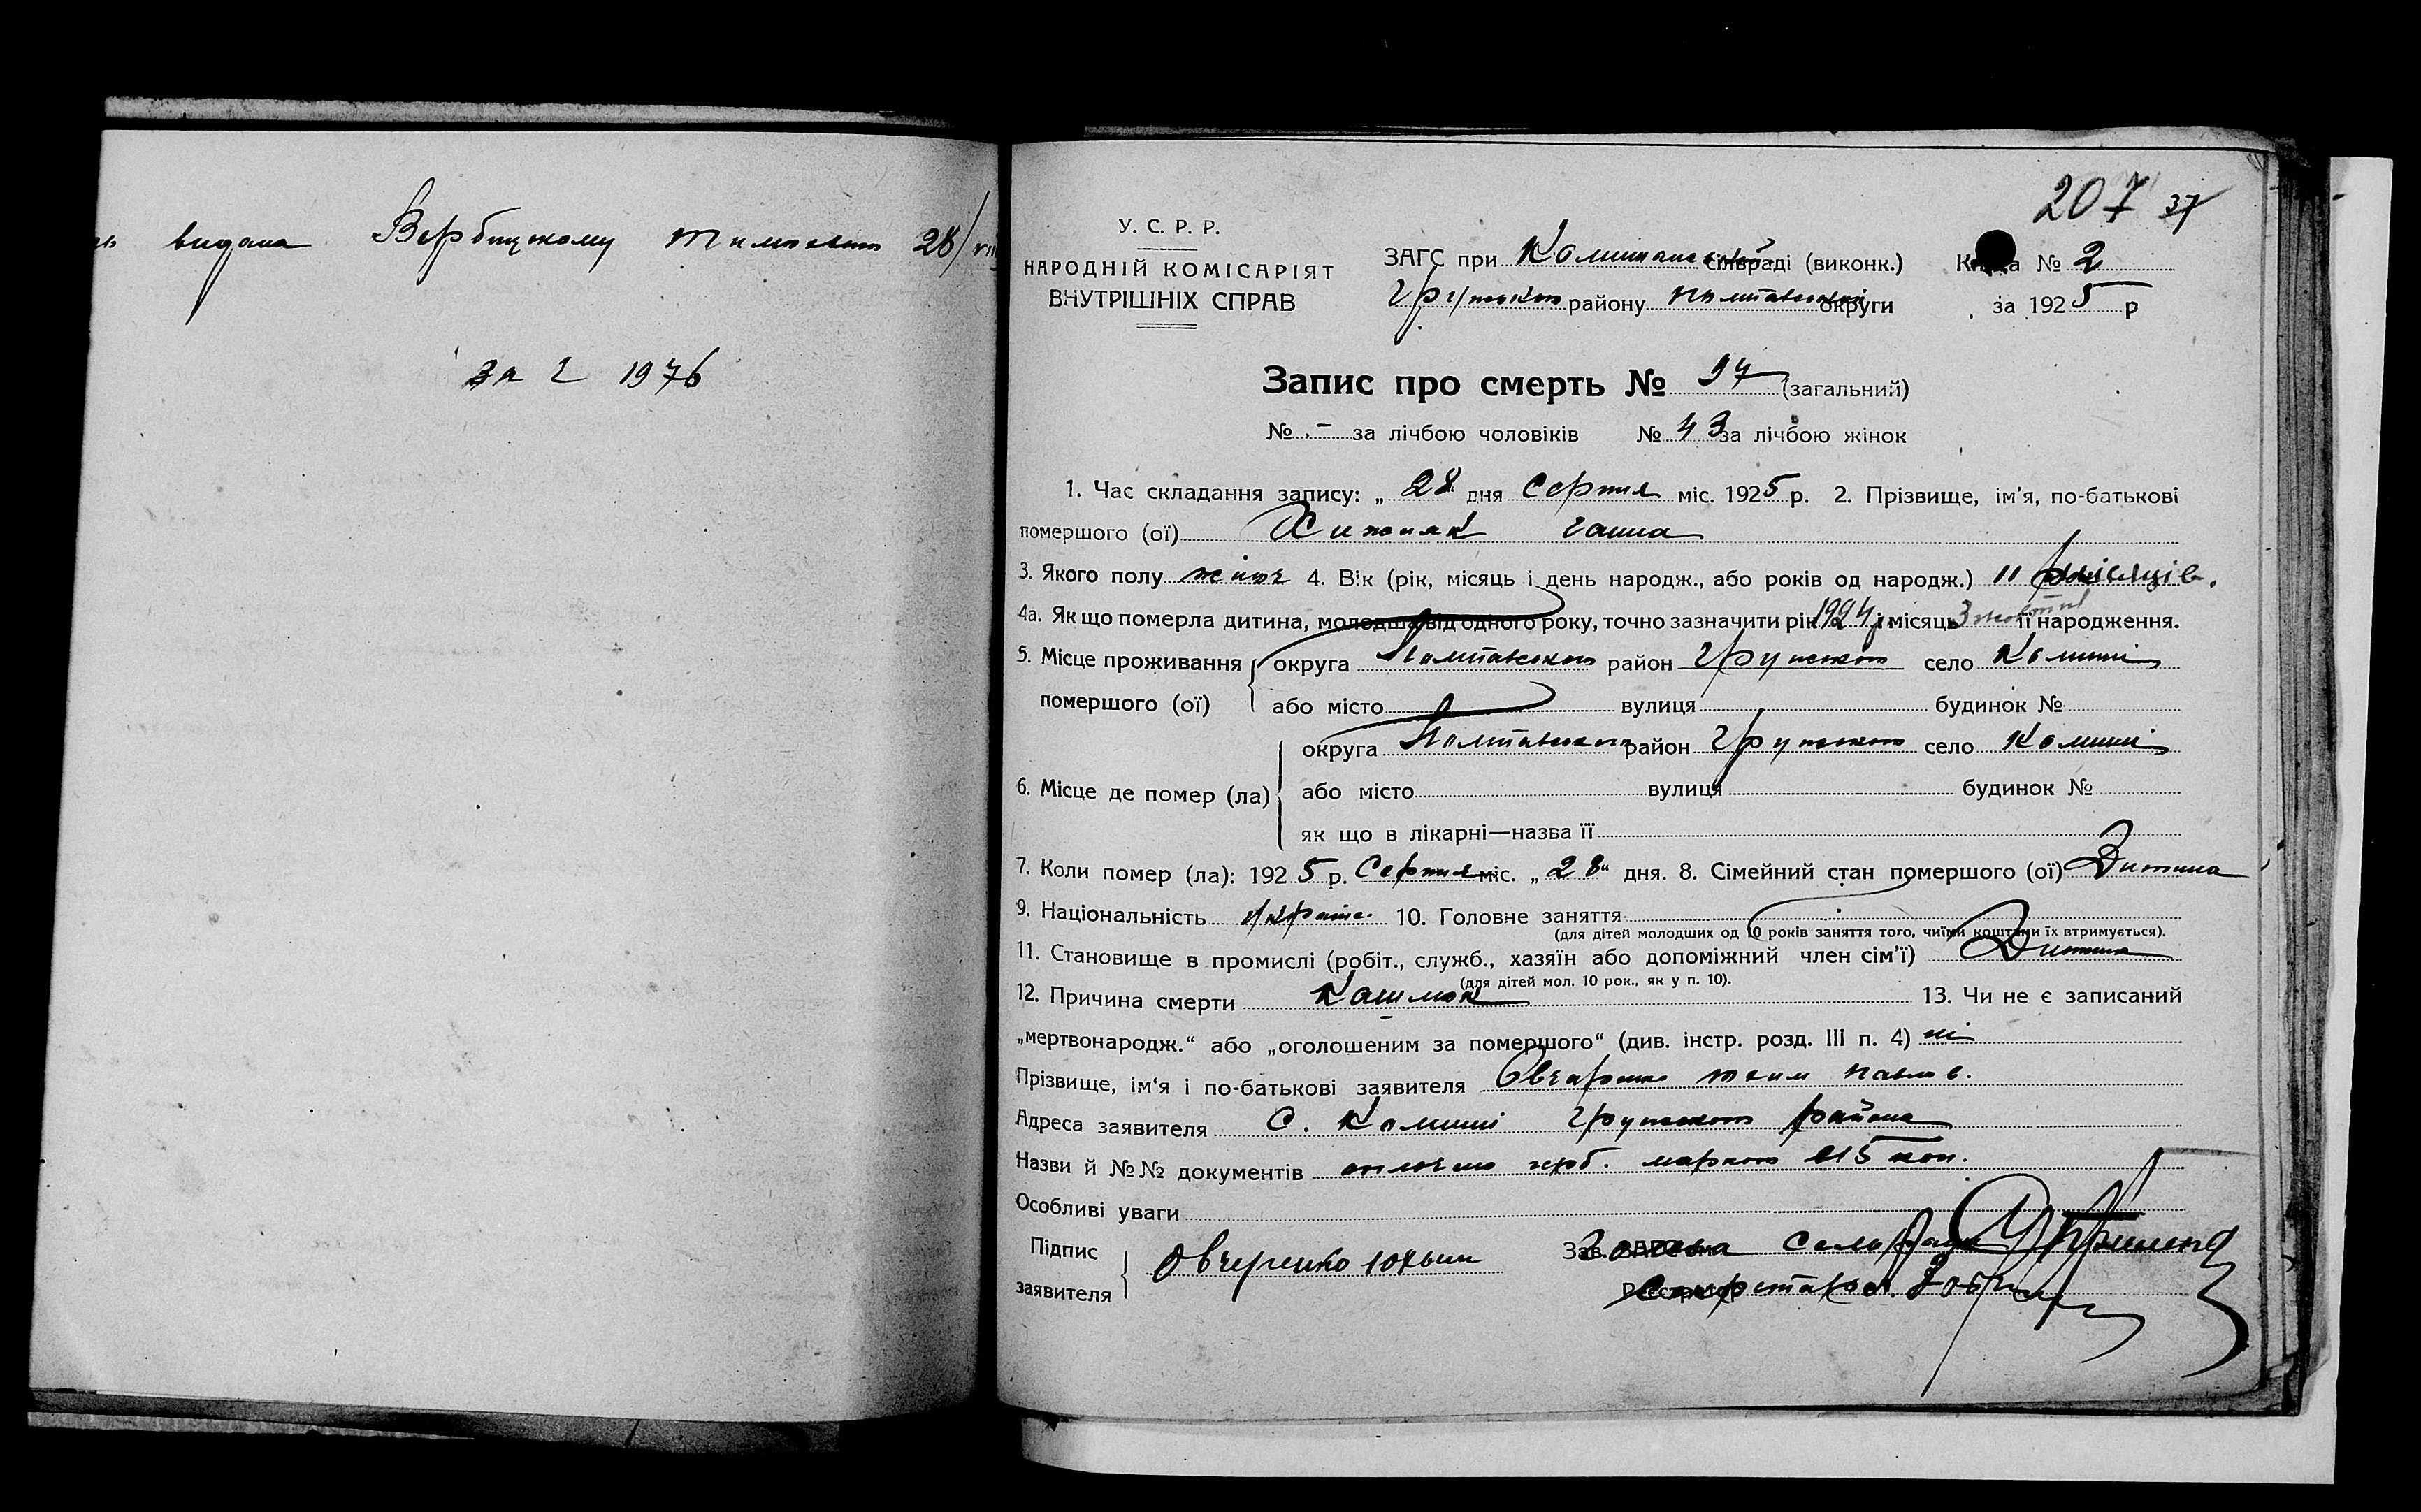 видана Вербицькому Тимофію 28/VIII
за 2 1976
207 37
У. С. Р. Р.
НАРОДНІЙ КОМІСАРІЯТ
ВНУТРІШНІХ СПРАВ
ЗАГС при сільраді (виконк.) Книга № 2
району Полтавської округи за 1925 р
Запис про смерть № 97 (загальний)
№ - за лічбою чоловіків № 43 за лічбою жінок
1. Час складання запису: „28 дня Серпня міс. 1925 р. 2. Прізвище, ім'я, по-батькові
помершого (ої) Хижняк Ганна
3. Якого полу жіноч 4. Вік (рік, місяць і день народж., або років од народж.) 11 місяців.
4а. Як що померла дитина, молодша від одного року, точно зазначити рік 1924 р. і місяць Жовтня її народження.
5. Місце проживання помершого (ої) округа Полтавського район село
або місто вулиця будинок №
6. Місце де помер (ла) округа Полтавського район село
або місто вулиця будинок №
як що в лікарні—назва її
7. Коли помер (ла): 1925 р. Серпня міс. „28" дня. 8. Сімейний стан помершого (ої) Дитина
9. Національність 10. Головне заняття
(для дітей молодших од 10 років заняття того, чиїми коштами їх втримується).
11. Становище в промислі (робіт., служб., хазяїн або допоміжний член сім'ї) Дитина
(для дітей мол. 10 рок., як у п. 10).
12. Причина смерти Кашлюк 13. Чи не є записаний
„мертвонародж." або „оголошеним за помершого" (див. інстр. розд. III п. 4) ні
Прізвище, ім'я і по-батькові заявителя Овчаренко Павлов.
Адреса заявителя С. района
Назви й №№ документів герб. маркою 15 коп.
Особливі уваги
Підпис заявителя Овчеренко Юхым
Зав. ЗАГС'ом Голова Сельради
Реєстратор Секретарь